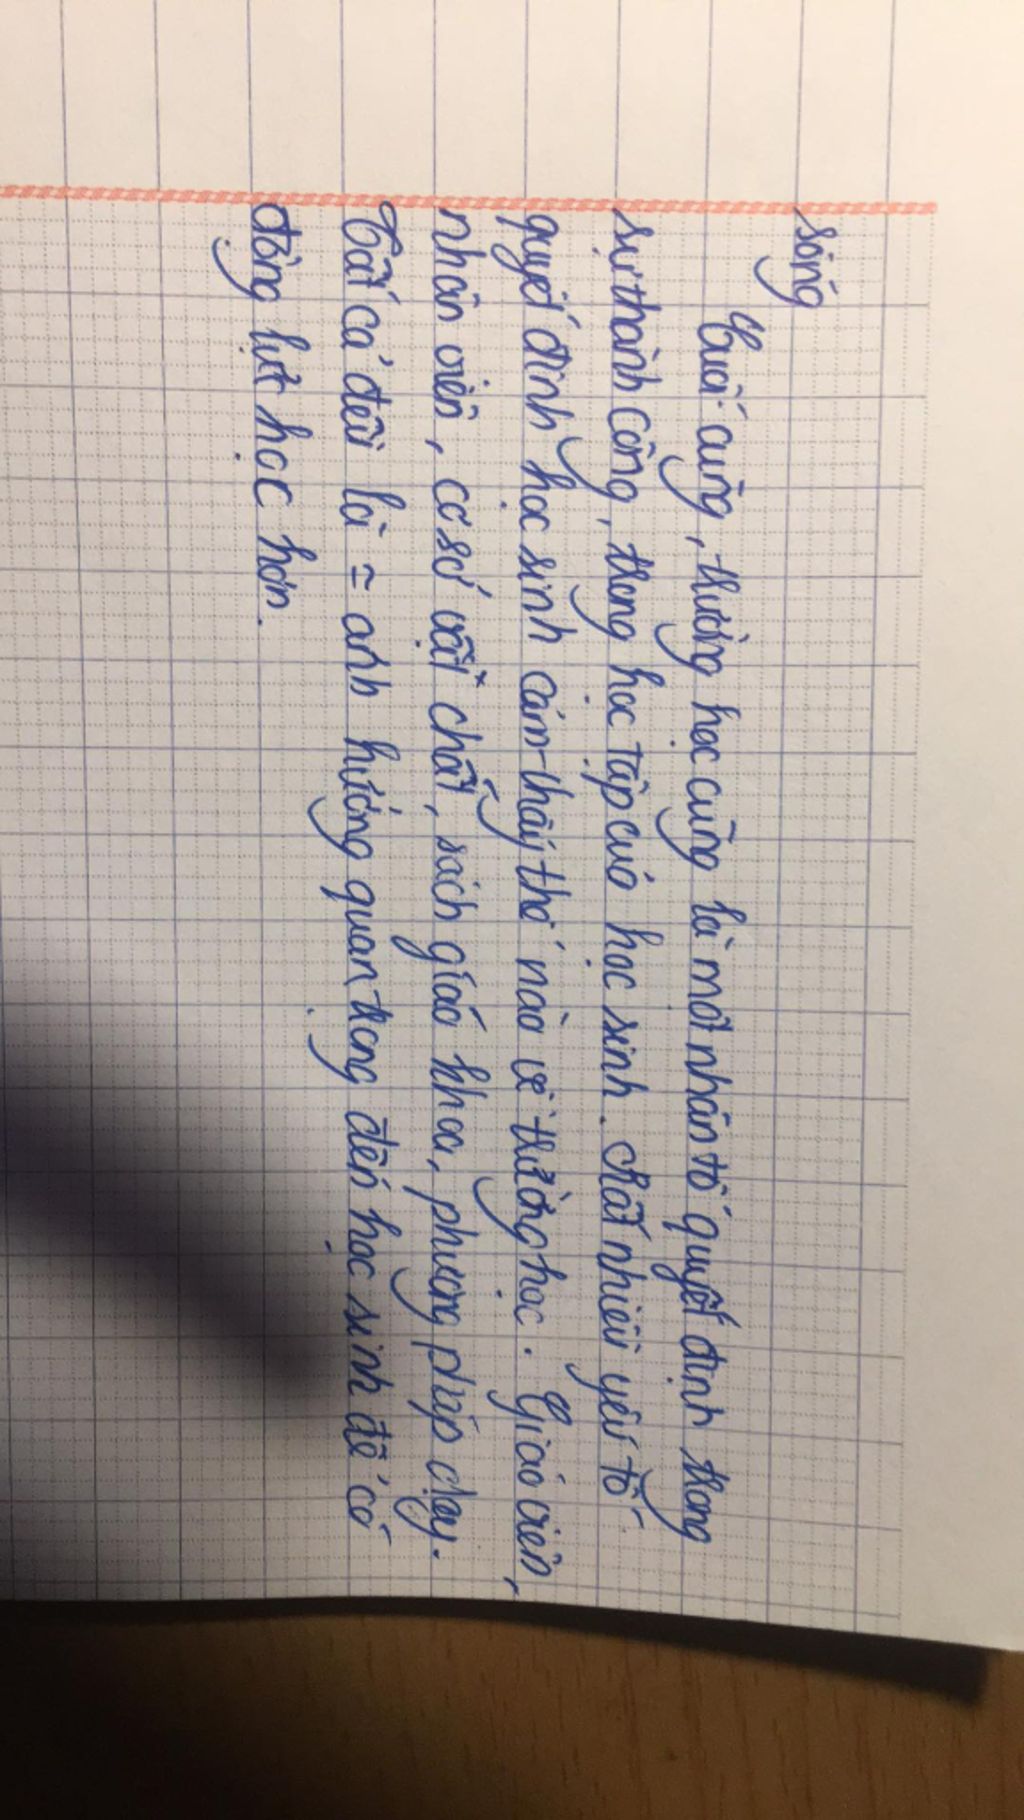 sống
Cuối cùng, trường học cũng là một nhân tố quyết định trong
sự thành công, trong học tập của học sinh. Rất nhiều yếu tố
quyết định học sinh cảm thấy thế nào về trường học. Giáo viên,
nhân viên, cơ sở vật chất, sách giáo khoa, phương pháp dạy.
Tất cả đều là = ảnh hưởng quan trọng đến học sinh để có
động lực học hơn.